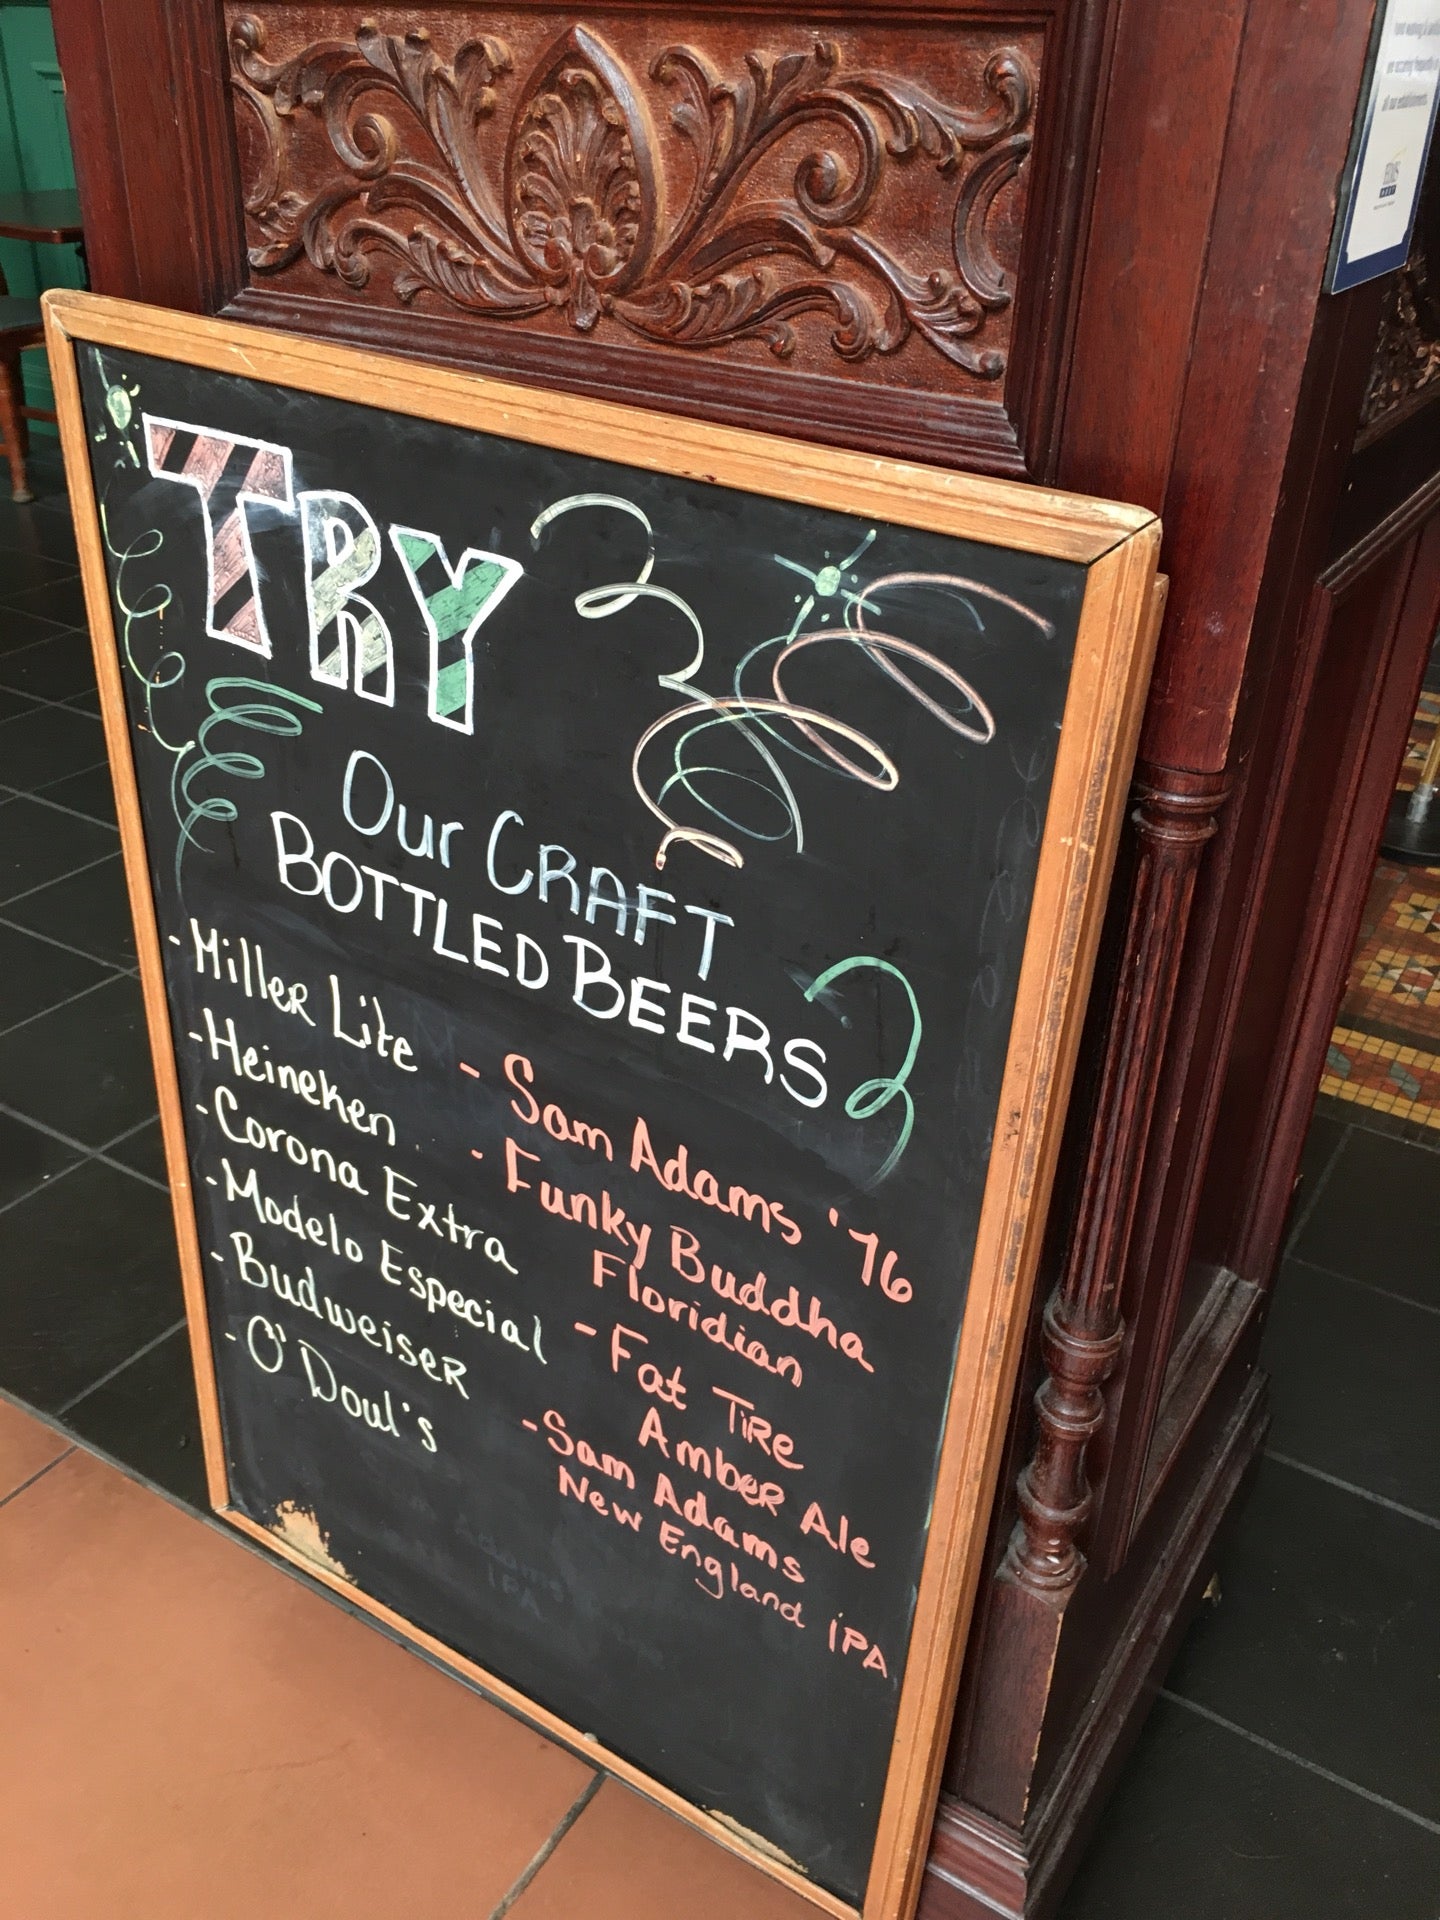 TRY
Our CRAFT
BOTTLED BEERS
- Miller Lite
- Heineken
- Corona Extra
- Modelo Especial
- Budweiser
- O'Doul's
- Sam Adams '76
- Funky Buddha
Floridian
- Fat Tire
Amber Ale
- Sam Adams
New England IPA
are occurring frequently
all our establishments